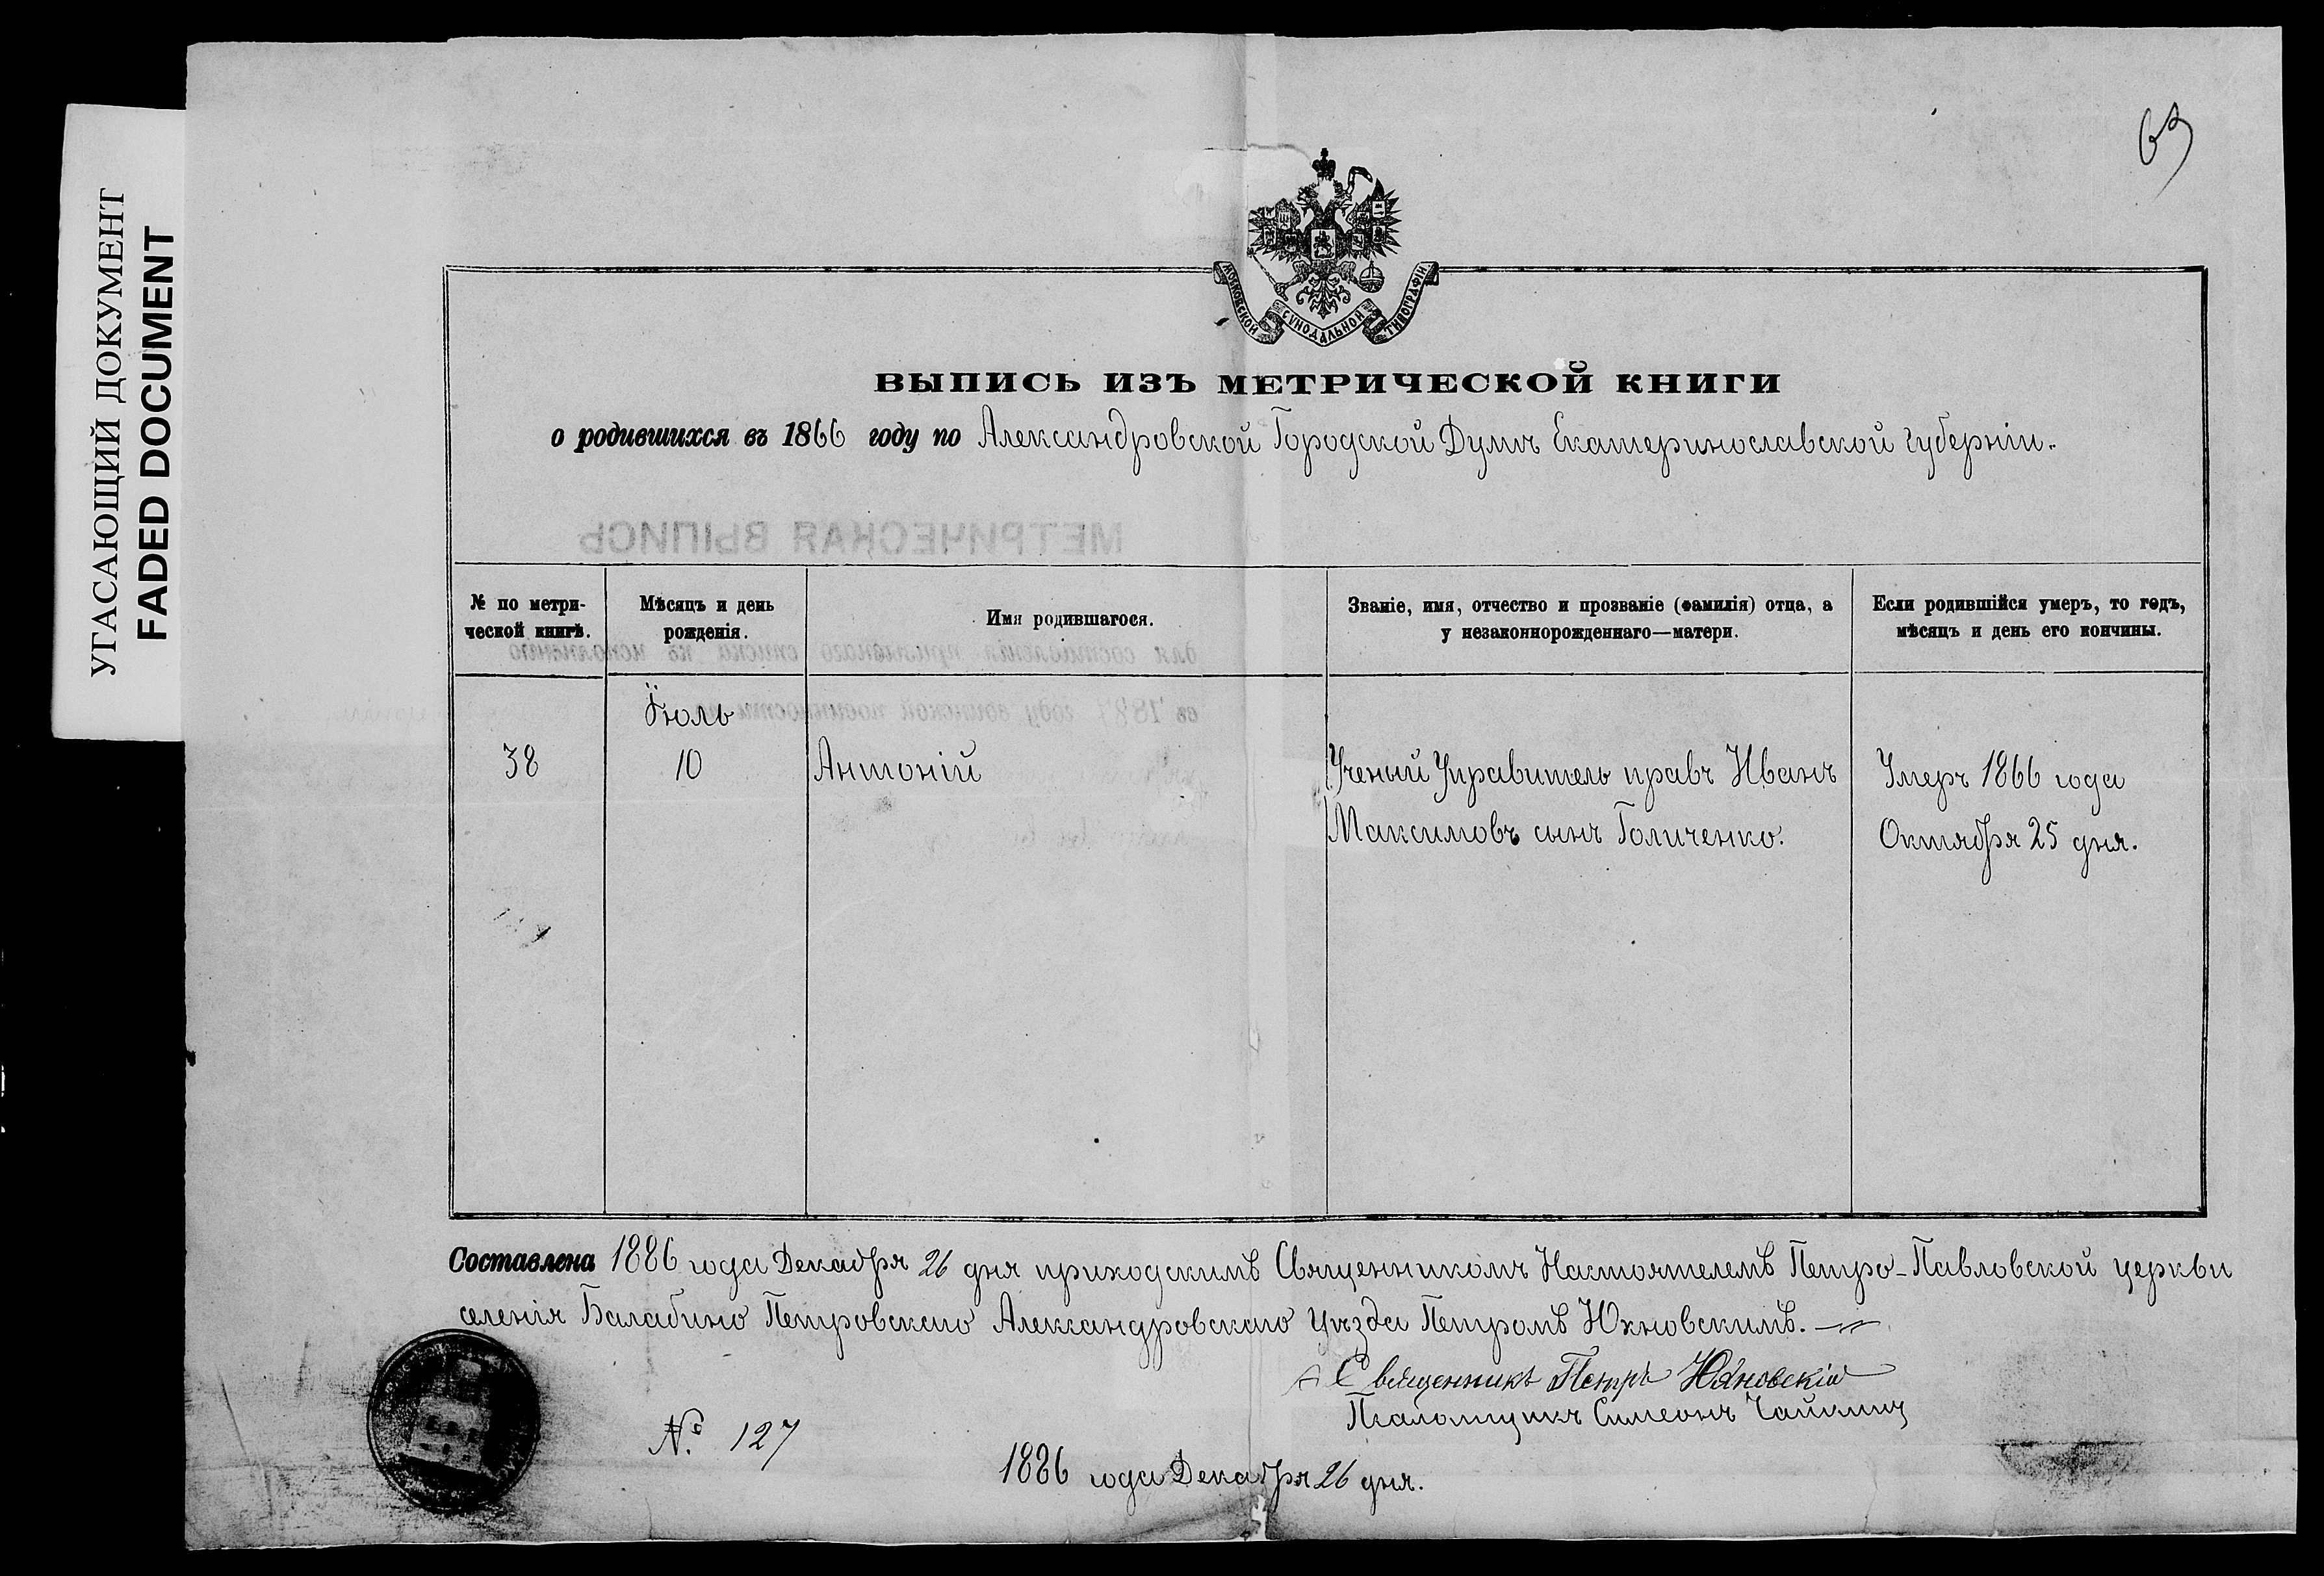 УГАСАЮЩИЙ ДОКУМЕНТ
FADED DOCUMENT
63
МОСКОВСКОЙ СѴНОДАЛЬНОЙ ТИПОГРАФІИ
ВЫПИСЬ ИЗЪ МЕТРИЧЕСКОЙ КНИГИ
о родившихся въ 1866 году по Александровской Городской Думѣ Екатеринославской губерніи.
МЕТРИЧЕСКАЯ ВЫПИСЬ
№ по метри-
ческой книгѣ.
Мѣсяцъ и день
рожденія.
Имя родившагося.
Званіе, имя, отчество и прозваніе (фамилія) отца, а
у незаконнорожденнаго—матери.
Если родившійся умеръ, то годъ,
мѣсяцъ и день его кончины.
для составленія призывнаго списка къ исполненію
въ 1887 году воинской повинности
Іюль
38
10
Антоній
Ученый Управитель правъ Иванъ
Максимовъ сынъ Голиченко.
Умеръ 1866 года
Октября 25 дня.
Составлена 1886 года Декабря 26 дня приходскимъ Священникомъ Настоятелемъ Петро-Павловской церкви
селенія Балабино Петровскаго Александровскаго Уѣзда Петромъ Юхновскимъ.
Священникъ Петръ Юхновскій
Псаломщикъ Симеонъ
№ 127
1886 года Декабря 26 дня.